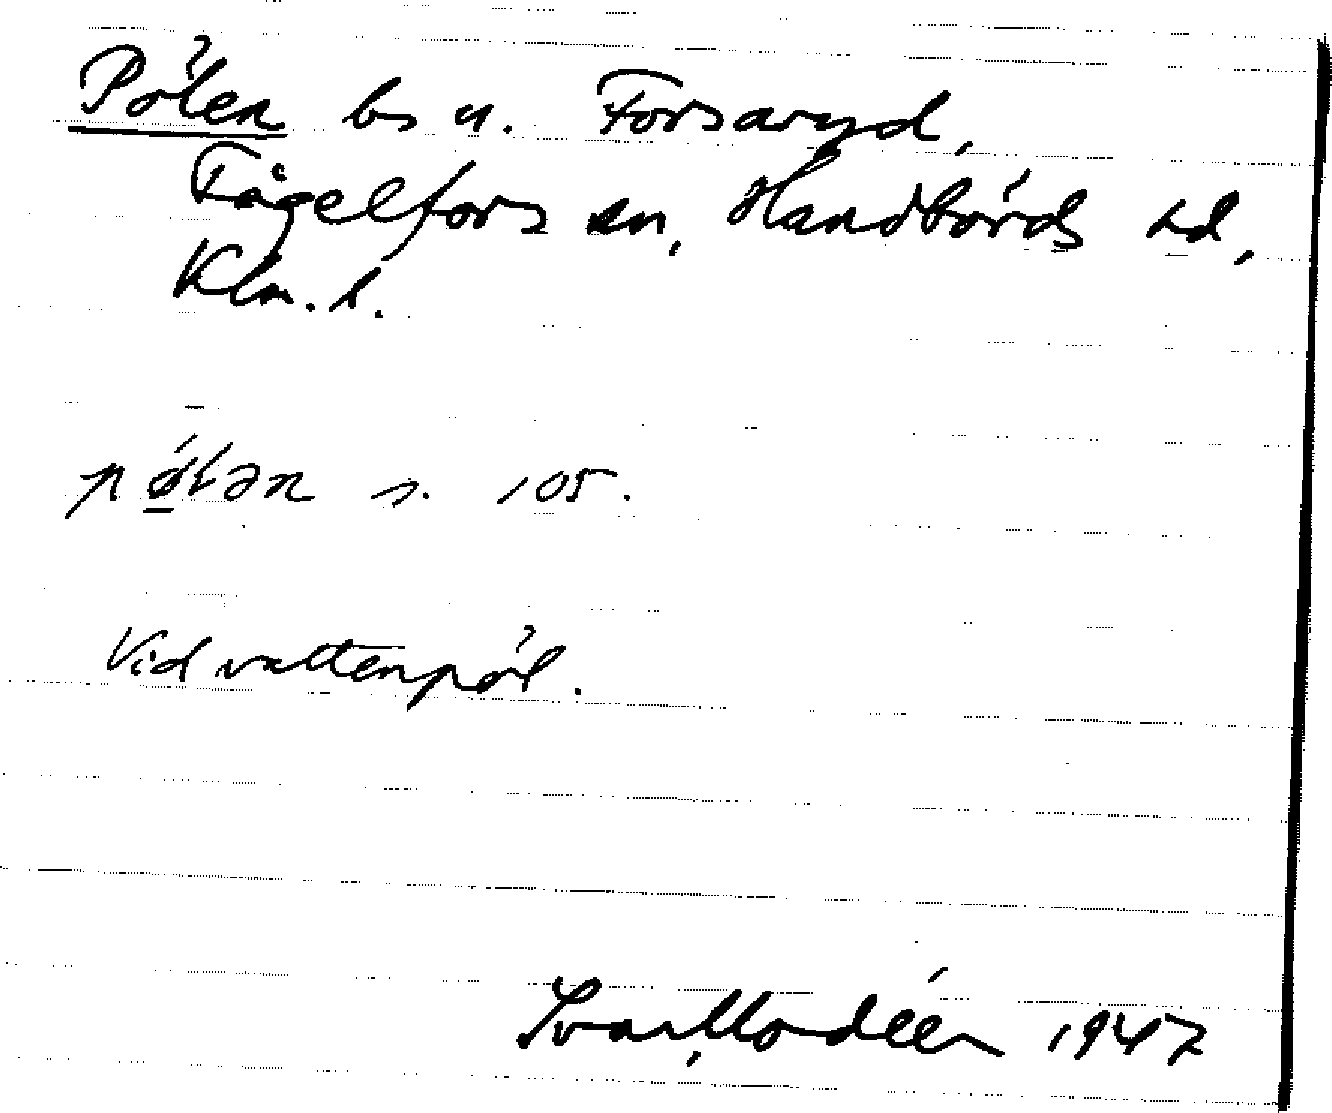 Pölen bs u. Forsaryd,
Fågelfors sn, Handbörds hd,
Klm. l.
pø̀lən s. 105.
Vid vattenpöl.
Ivar Modéer 1947